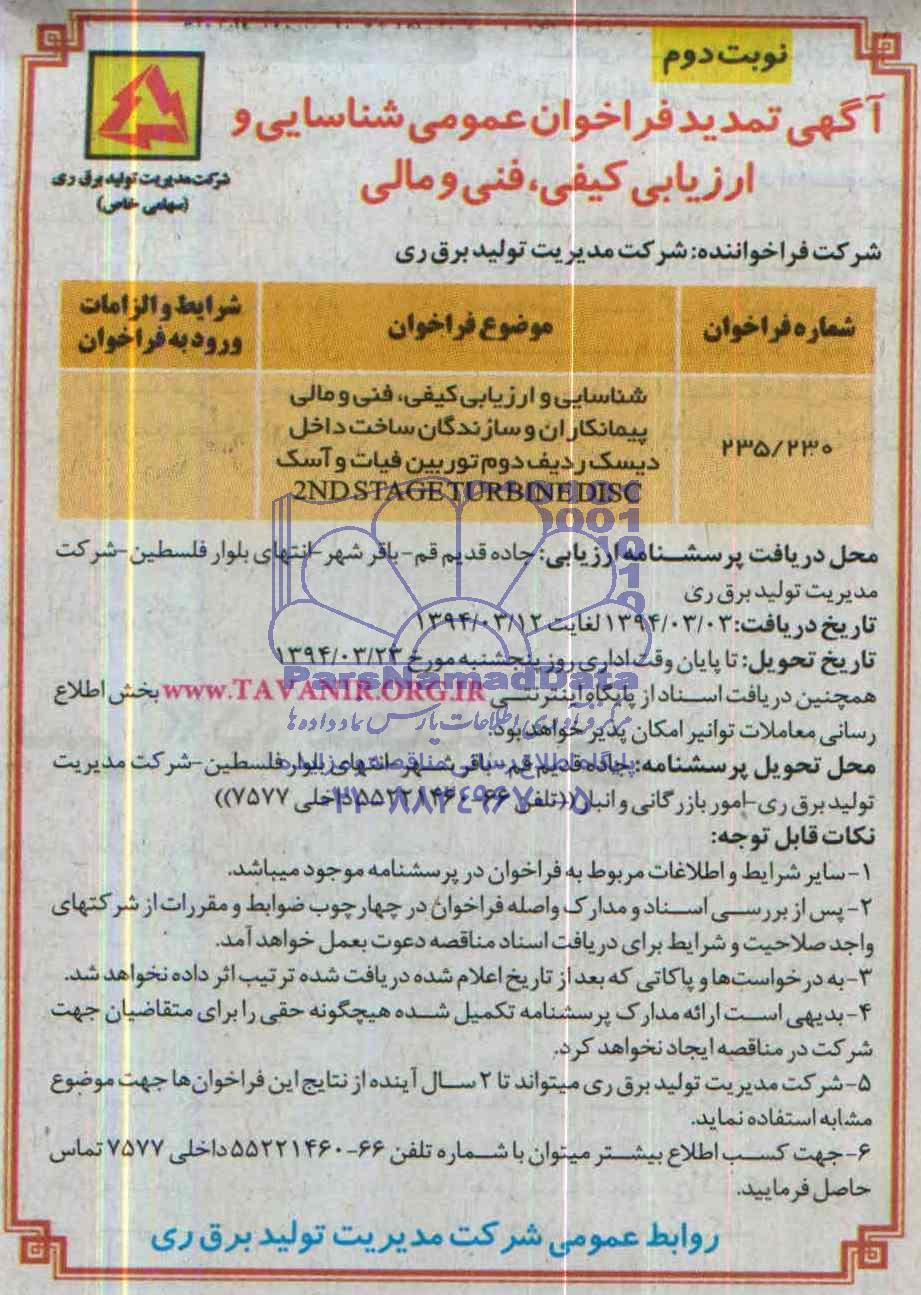 نوبت دوم
آگهی تمدید فراخوان عمومی شناسایی و
ارزیابی کیفی، فنی و مالی
شرکت مدیریت تولید برق ری
(سهامی خاص)
شرکت فراخواننده: شرکت مدیریت تولید برق ری
شماره فراخوان
موضوع فراخوان
شرایط و الزامات
ورود به فراخوان
۲۳۵/۲۳۰
شناسایی و ارزیابی کیفی، فنی و مالی
پیمانکاران و سازندگان ساخت داخل
دیسک ردیف دوم توربین فیات و آسک
2ND STAGE TURBINE DISC
محل دریافت پرسشنامه ارزیابی: جاده قدیم قم- باقر شهر-انتهای بلوار فلسطین-شرکت
مدیریت تولید برق ری
تاریخ دریافت: ۱۳۹۴/۰۳/۰۳ لغایت ۱۳۹۴/۰۳/۱۲
تاریخ تحویل: تا پایان وقت اداری روز پنجشنبه مورخ ۱۳۹۴/۰۳/۲۳
ParsNamadData
همچنین دریافت اسناد از پایگاه اینترنتی www.TAVANIR.ORG.IR بخش اطلاع
رسانی معاملات توانیر امکان پذیر خواهد بود.
محل تحویل پرسشنامه: جاده قدیم قم- باقر شهر- انتهای بلوار فلسطین-شرکت مدیریت
تولید برق ری-امور بازرگانی و انبار ((تلفن ۶۶-۵۵۲۲۱۴۶۰ داخلی ۷۵۷۷))
نکات قابل توجه:
۱-سایر شرایط و اطلاعات مربوط به فراخوان در پرسشنامه موجود میباشد.
۲-پس از بررسی اسناد و مدارک واصله فراخوان در چهارچوب ضوابط و مقررات از شرکتهای
واجد صلاحیت و شرایط برای دریافت اسناد مناقصه دعوت بعمل خواهد آمد.
۳-به درخواست‌ها و پاکاتی که بعد از تاریخ اعلام شده دریافت شده ترتیب اثر داده نخواهد شد.
۴-بدیهی است ارائه مدارک پرسشنامه تکمیل شده هیچگونه حقی را برای متقاضیان جهت
شرکت در مناقصه ایجاد نخواهد کرد.
۵-شرکت مدیریت تولید برق ری میتواند تا ۲ سال آینده از نتایج این فراخوان‌ها جهت موضوع
مشابه استفاده نماید.
۶-جهت کسب اطلاع بیشتر میتوان با شماره تلفن ۶۶-۵۵۲۲۱۴۶۰ داخلی ۷۵۷۷ تماس
حاصل فرمایید.
روابط عمومی شرکت مدیریت تولید برق ری